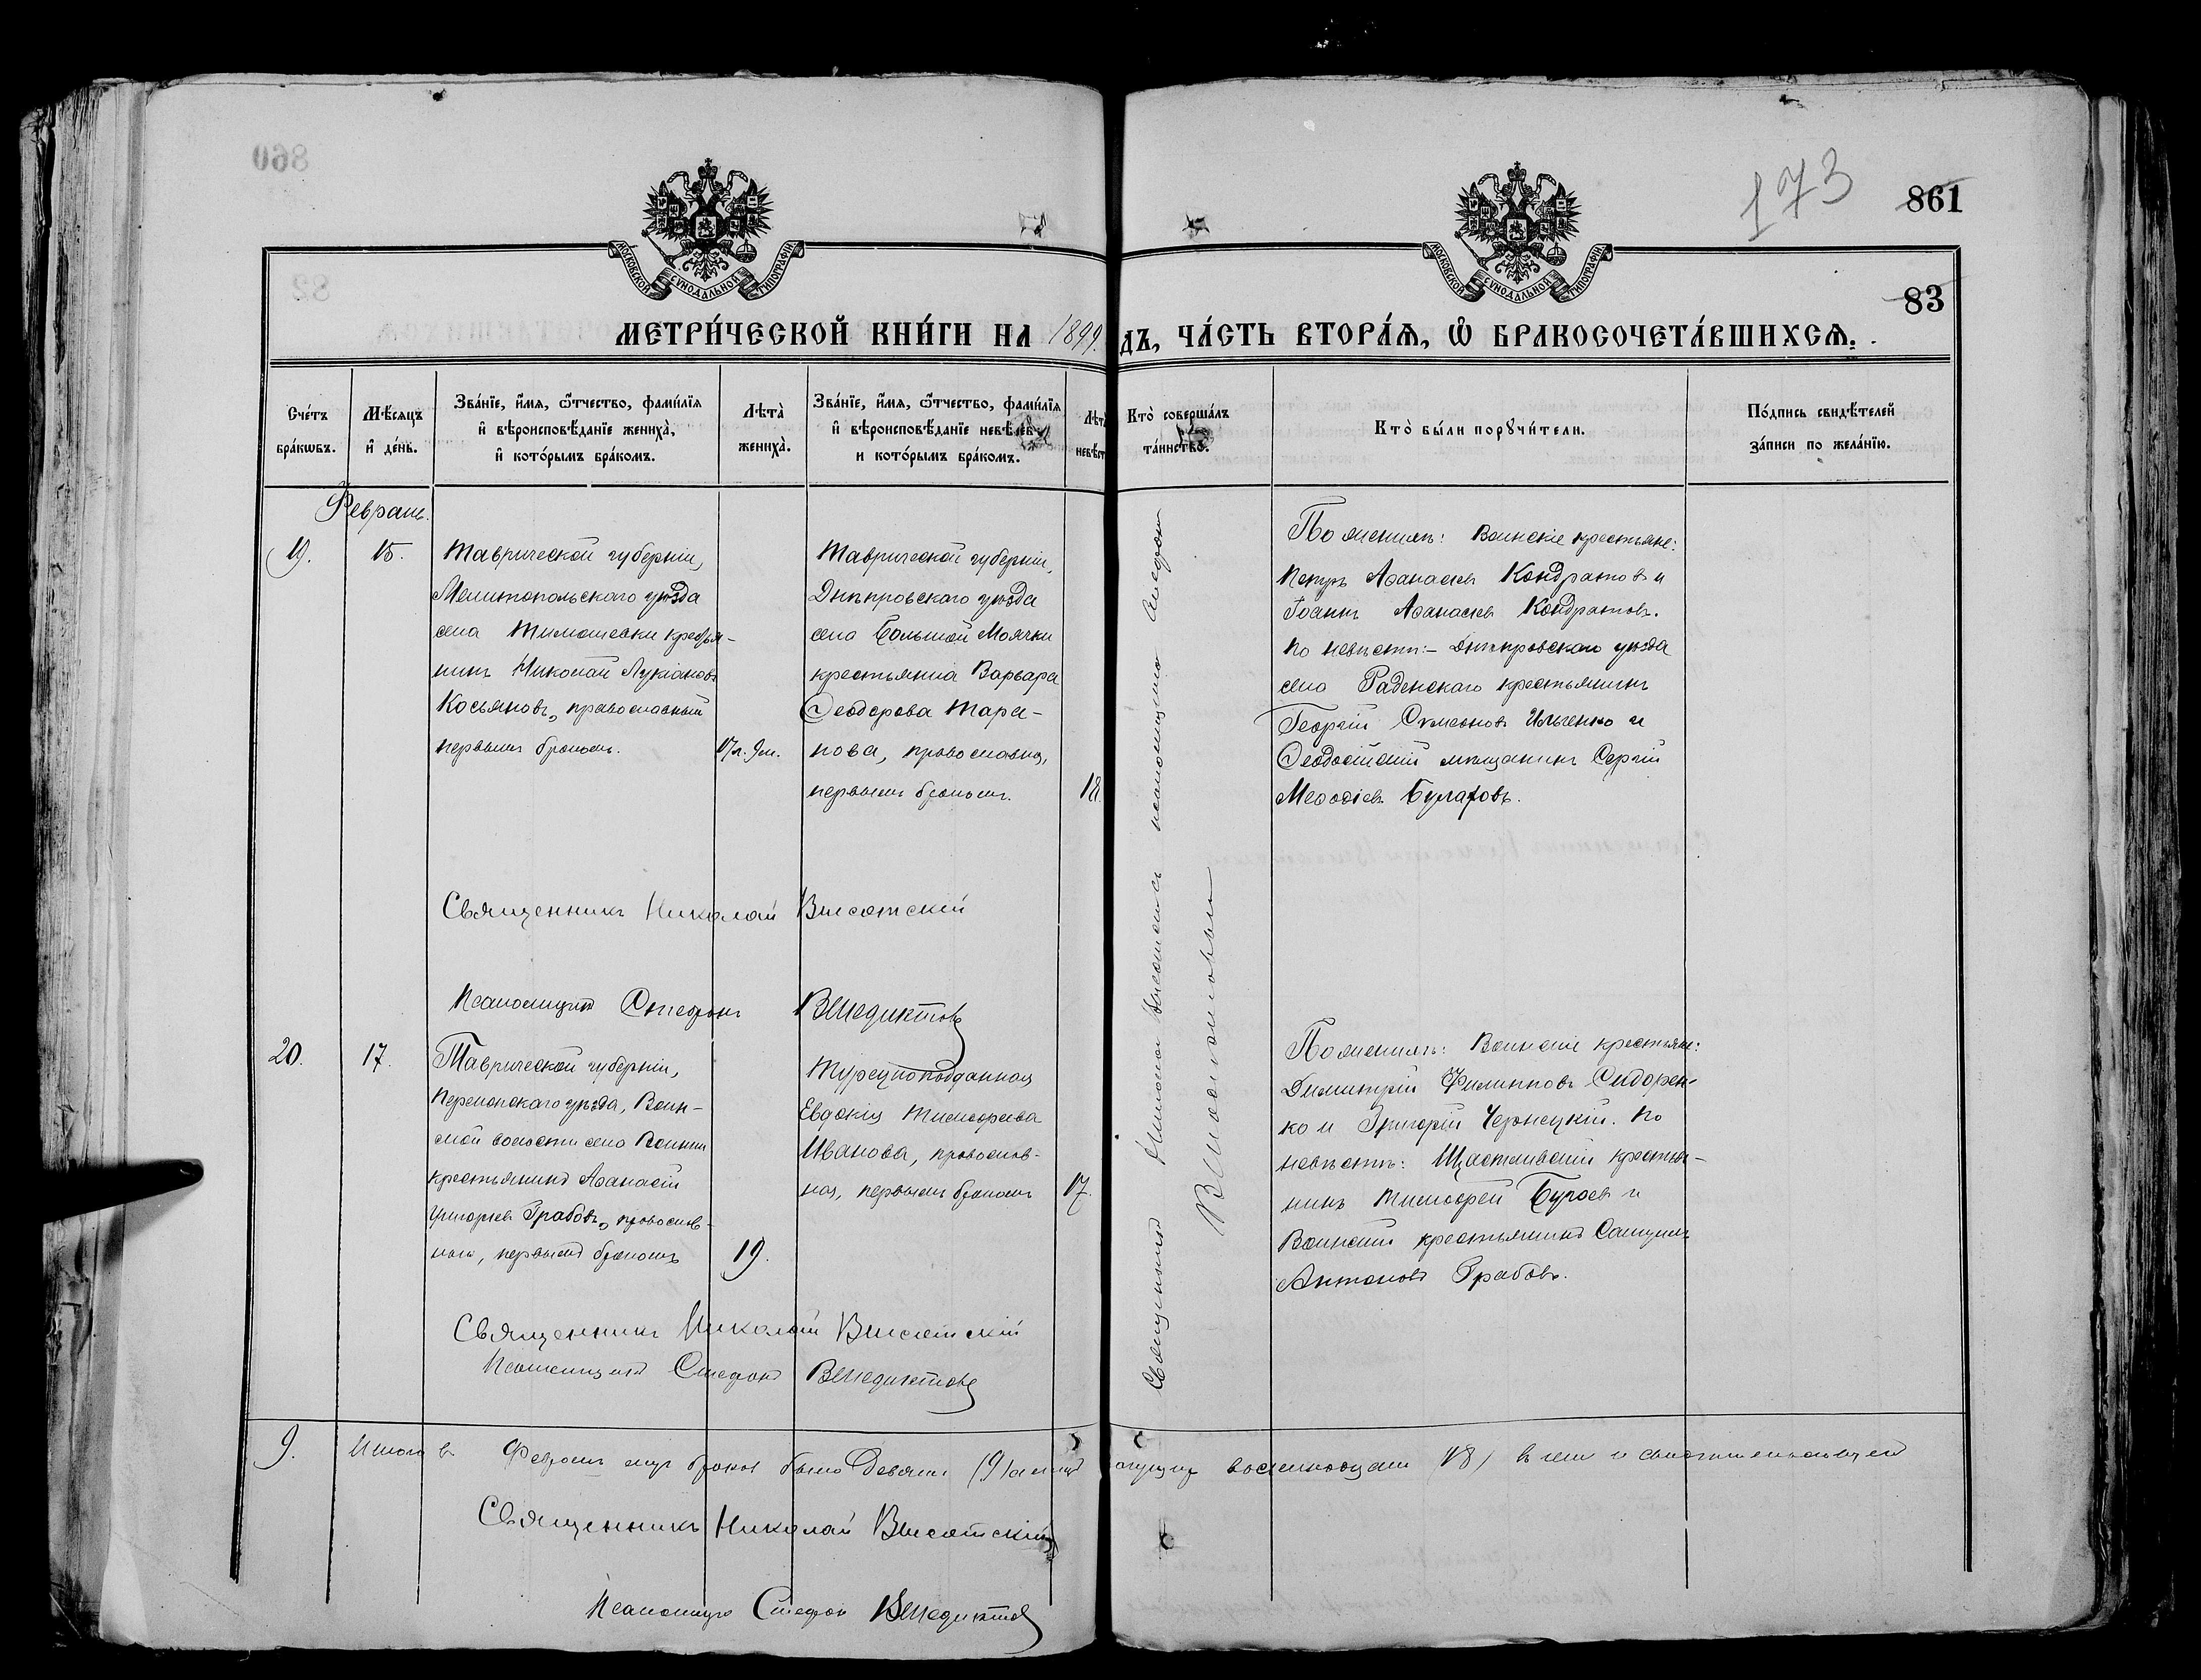 173
861
83
МОСКОВСКОЙ СУНОДАЛЬНОЙ ТИПОГРАФІИ
МОСКОВСКОЙ СУНОДАЛЬНОЙ ТИПОГРАФІИ
МЕТРИ́ЧЕСКОЙ КНИ́ГИ НА 1899 ДЪ, ЧА́СТЬ ВТОРА́Ѧ, Ѽ БРАКОСОЧЕТА́ВШИХСѦ.
Сче́тъ бра́кѡвъ.
Мѣ́сяцъ и҆ де́нь.
Зва́нїе, и҆́мя, ѻ҆́тчество, фами́лїя и҆ вѣроисповѣ́данїе жениха̀, и҆ кото́рымъ бра́комъ.
Лѣта̀ жениха̀.
Зва́нїе, и҆́мя, ѻ҆́тчество, фами́лїя и҆ вѣроисповѣ́данїе невѣ́сты и кото́рымъ бра́комъ.
Лѣта̀ невѣ́ст
Кто̀ соверша́лъ та́инство.
Кто̀ бы́ли порꙋчи́тели.
По́дпись свидѣ́телей за́писи по жела́нїю.
Февраль.
19.
15.
Таврической губерніи,
Мелитопольскаго уѣзда
села Тимошевки крестья-
нинъ Николай Лукіановъ
Косьяновъ, православный
первымъ бракомъ.
17л. 9м.
Таврической губерніи,
Днѣпровскаго уѣзда
села Большой Маячки
крестьянка Варвара
Ѳеодорова Тара-
нова, православна,
первымъ бракомъ.
18.
Священникъ Николай Высотскій псаломщикъ Стефанъ
Венедиктовъ
По женихѣ: Воинскіе крестьяне:
Петръ Аѳанасіевъ Кондратовъ и
Іоаннъ Аѳанасіевъ Кондратовъ.
По невѣстѣ:- Днѣпровскаго уѣзда
села Раденскаго крестьянинъ
Георгій Симеоновъ Ильченко и
Ѳеодосійскій мѣщанинъ Сергій
Меѳодіевъ Булатовъ.
Священникъ Николай Высотскій
Псаломщикъ Стефанъ Венедиктовъ
20.
17.
Таврической губерніи,
Перекопскаго уѣзда, Воин-
ской волости села Воинки
крестьянинъ Аѳанасій
Григоріевъ Грабовъ, православ-
наго, первымъ бракомъ
19.
Турецкоподданная
Евдокія Тимоѳеева
Иванова, православ-
ная, первымъ бракомъ
17.
По женихѣ: Воинскіе крестьяне:
Димитрій Филипповъ Сидорен-
ко и Григорій Чернецкій. По
невѣстѣ: Щастливскій крестья-
нинъ Тимоѳей Бугаевъ и
Воинскій крестьянинъ Самуилъ
Антоновъ Грабовъ.
Священникъ Николай Высотскій
Псаломщикъ Стефанъ Венедиктовъ
9.
Итого въ Февралѣ м-цѣ браковъ было девять (9) а лицъ восемнадцать (18)
Священникъ Николай Высотскій
Псаломщикъ Стефанъ Венедиктовъ